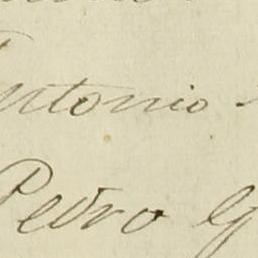 Antonio
Pedro G